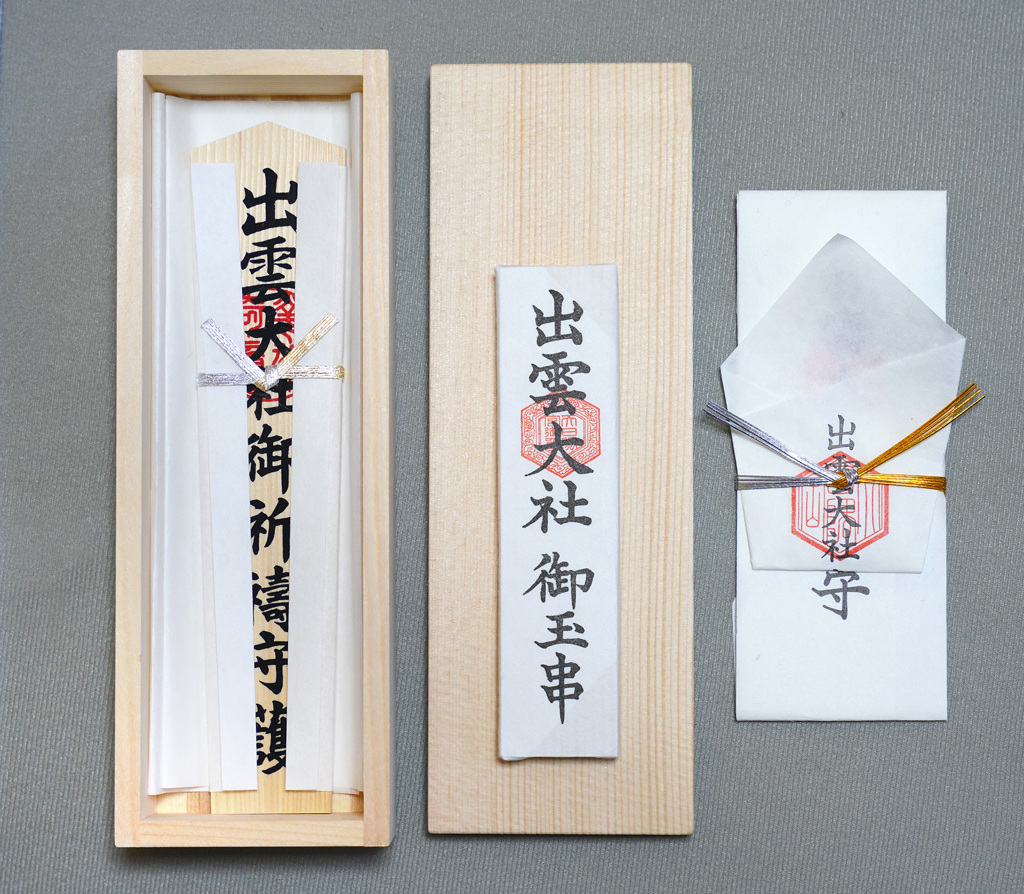 出雲大社御祈禱守護
出雲大社 御玉串
出雲大社守